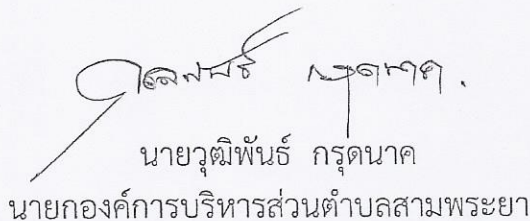 นายวุฒิพันธ์ กรุดนาค
นายกองค์การบริหารส่วนตำบลสามพระยา